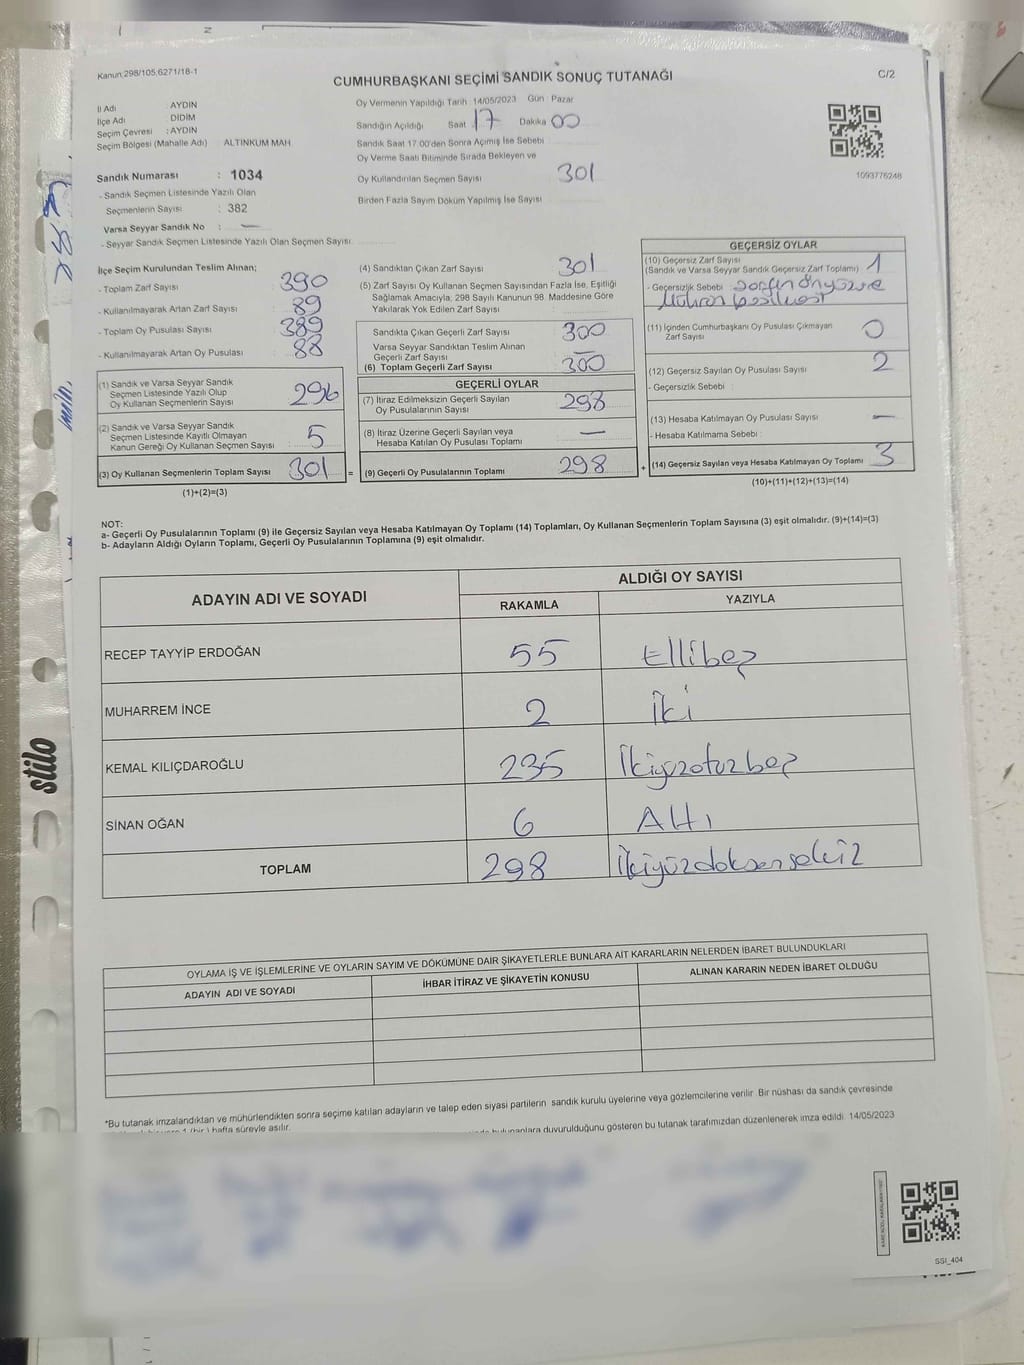 Kanun:298/105,6271/18-1
CUMHURBAŞKANI SEÇİMİ SANDIK SONUÇ TUTANAĞI
C/2
İl Adı AYDIN
İlçe Adı DİDİM
Seçim Çevresi : AYDIN
Seçim Bölgesi (Mahalle Adı) ALTINKUM MAH.
Sandık Numarası : 1034
- Sandık Seçmen Listesinde Yazılı Olan
Seçmenlerin Sayısı : 382
Varsa Seyyar Sandık No : —
- Seyyar Sandık Seçmen Listesinde Yazılı Olan Seçmen Sayısı
Oy Vermenin Yapıldığı Tarih :14/05/2023 Gün : Pazar
Sandığın Açıldığı Saat 17 Dakika 00
Sandık Saat 17.00'den Sonra Açımış İse Sebebi
Oy Verme Saati Bitiminde Sırada Bekleyen ve
Oy Kullandırılan Seçmen Sayısı 301
Birden Fazla Sayım Döküm Yapılmış İse Sayısı
1093776248
İlçe Seçim Kurulundan Teslim Alınan;
- Toplam Zarf Sayısı : 390
- Kullanılmayarak Artan Zarf Sayısı : 89
- Toplam Oy Pusulası Sayısı : 389
- Kullanılmayarak Artan Oy Pusulası : 88
(1) Sandık ve Varsa Seyyar Sandık
Seçmen Listesinde Yazılı Olup
Oy Kullanan Seçmenlerin Sayısı 296
(2) Sandık ve Varsa Seyyar Sandık
Seçmen Listesinde Kayıtlı Olmayan
Kanun Gereği Oy Kullanan Seçmen Sayısı 5
(3) Oy Kullanan Seçmenlerin Toplam Sayısı 301 =
(1)+(2)=(3)
(4) Sandıktan Çıkan Zarf Sayısı 301
(5) Zarf Sayısı Oy Kullanan Seçmen Sayısından Fazla İse, Eşitliği
Sağlamak Amacıyla; 298 Sayılı Kanunun 98. Maddesine Göre
Yakılarak Yok Edilen Zarf Sayısı
Sandıkta Çıkan Geçerli Zarf Sayısı 300
Varsa Seyyar Sandıktan Teslim Alınan
Geçerli Zarf Sayısı
(6) Toplam Geçerli Zarf Sayısı 300
GEÇERLİ OYLAR
(7) İtiraz Edilmeksizin Geçerli Sayılan
Oy Pusulalarının Sayısı 298
(8) İtiraz Üzerine Geçerli Sayılan veya
Hesaba Katılan Oy Pusulası Toplamı —
(9) Geçerli Oy Pusulalarının Toplamı 298 +
GEÇERSİZ OYLAR
(10) Geçersiz Zarf Sayısı
(Sandık ve Varsa Seyyar Sandık Geçersiz Zarf Toplamı) 1
- Geçersizlik Sebebi
(11) İçinden Cumhurbaşkanı Oy Pusulası Çıkmayan
Zarf Sayısı 0
(12) Geçersiz Sayılan Oy Pusulası Sayısı 2
- Geçersizlik Sebebi :
(13) Hesaba Katılmayan Oy Pusulası Sayısı —
- Hesaba Katılmama Sebebi :
(14) Geçersiz Sayılan veya Hesaba Katılmayan Oy Toplamı 3
(10)+(11)+(12)+(13)=(14)
NOT:
a- Geçerli Oy Pusulalarının Toplamı (9) ile Geçersiz Sayılan veya Hesaba Katılmayan Oy Toplamı (14) Toplamları, Oy Kullanan Seçmenlerin Toplam Sayısına (3) eşit olmalıdır. (9)+(14)=(3)
b- Adayların Aldığı Oyların Toplamı, Geçerli Oy Pusulalarının Toplamına (9) eşit olmalıdır.
ADAYIN ADI VE SOYADI
ALDIĞI OY SAYISI
RAKAMLA YAZIYLA
RECEP TAYYİP ERDOĞAN 55 Ellibeş
MUHARREM İNCE 2 İki
KEMAL KILIÇDAROĞLU 235 İkiyüzotuzbeş
SİNAN OĞAN 6 Altı
TOPLAM 298 İkiyüzdoksansekiz
OYLAMA İŞ VE İŞLEMLERİNE VE OYLARIN SAYIM VE DÖKÜMÜNE DAİR ŞİKAYETLERLE BUNLARA AİT KARARLARIN NELERDEN İBARET BULUNDUKLARI
ADAYIN ADI VE SOYADI İHBAR İTİRAZ VE ŞİKAYETİN KONUSU ALINAN KARARIN NEDEN İBARET OLDUĞU
*Bu tutanak imzalandıktan ve mühürlendikten sonra seçime katılan adayların ve talep eden siyasi partilerin sandık kurulu üyelerine veya gözlemcilerine verilir. Bir nüshası da sandık çevresinde
hafta süreyle asılır. bulunanlara duyurulduğunu gösteren bu tutanak tarafımızdan düzenlenerek imza edildi. 14/05/2023
stilo
SSI_404